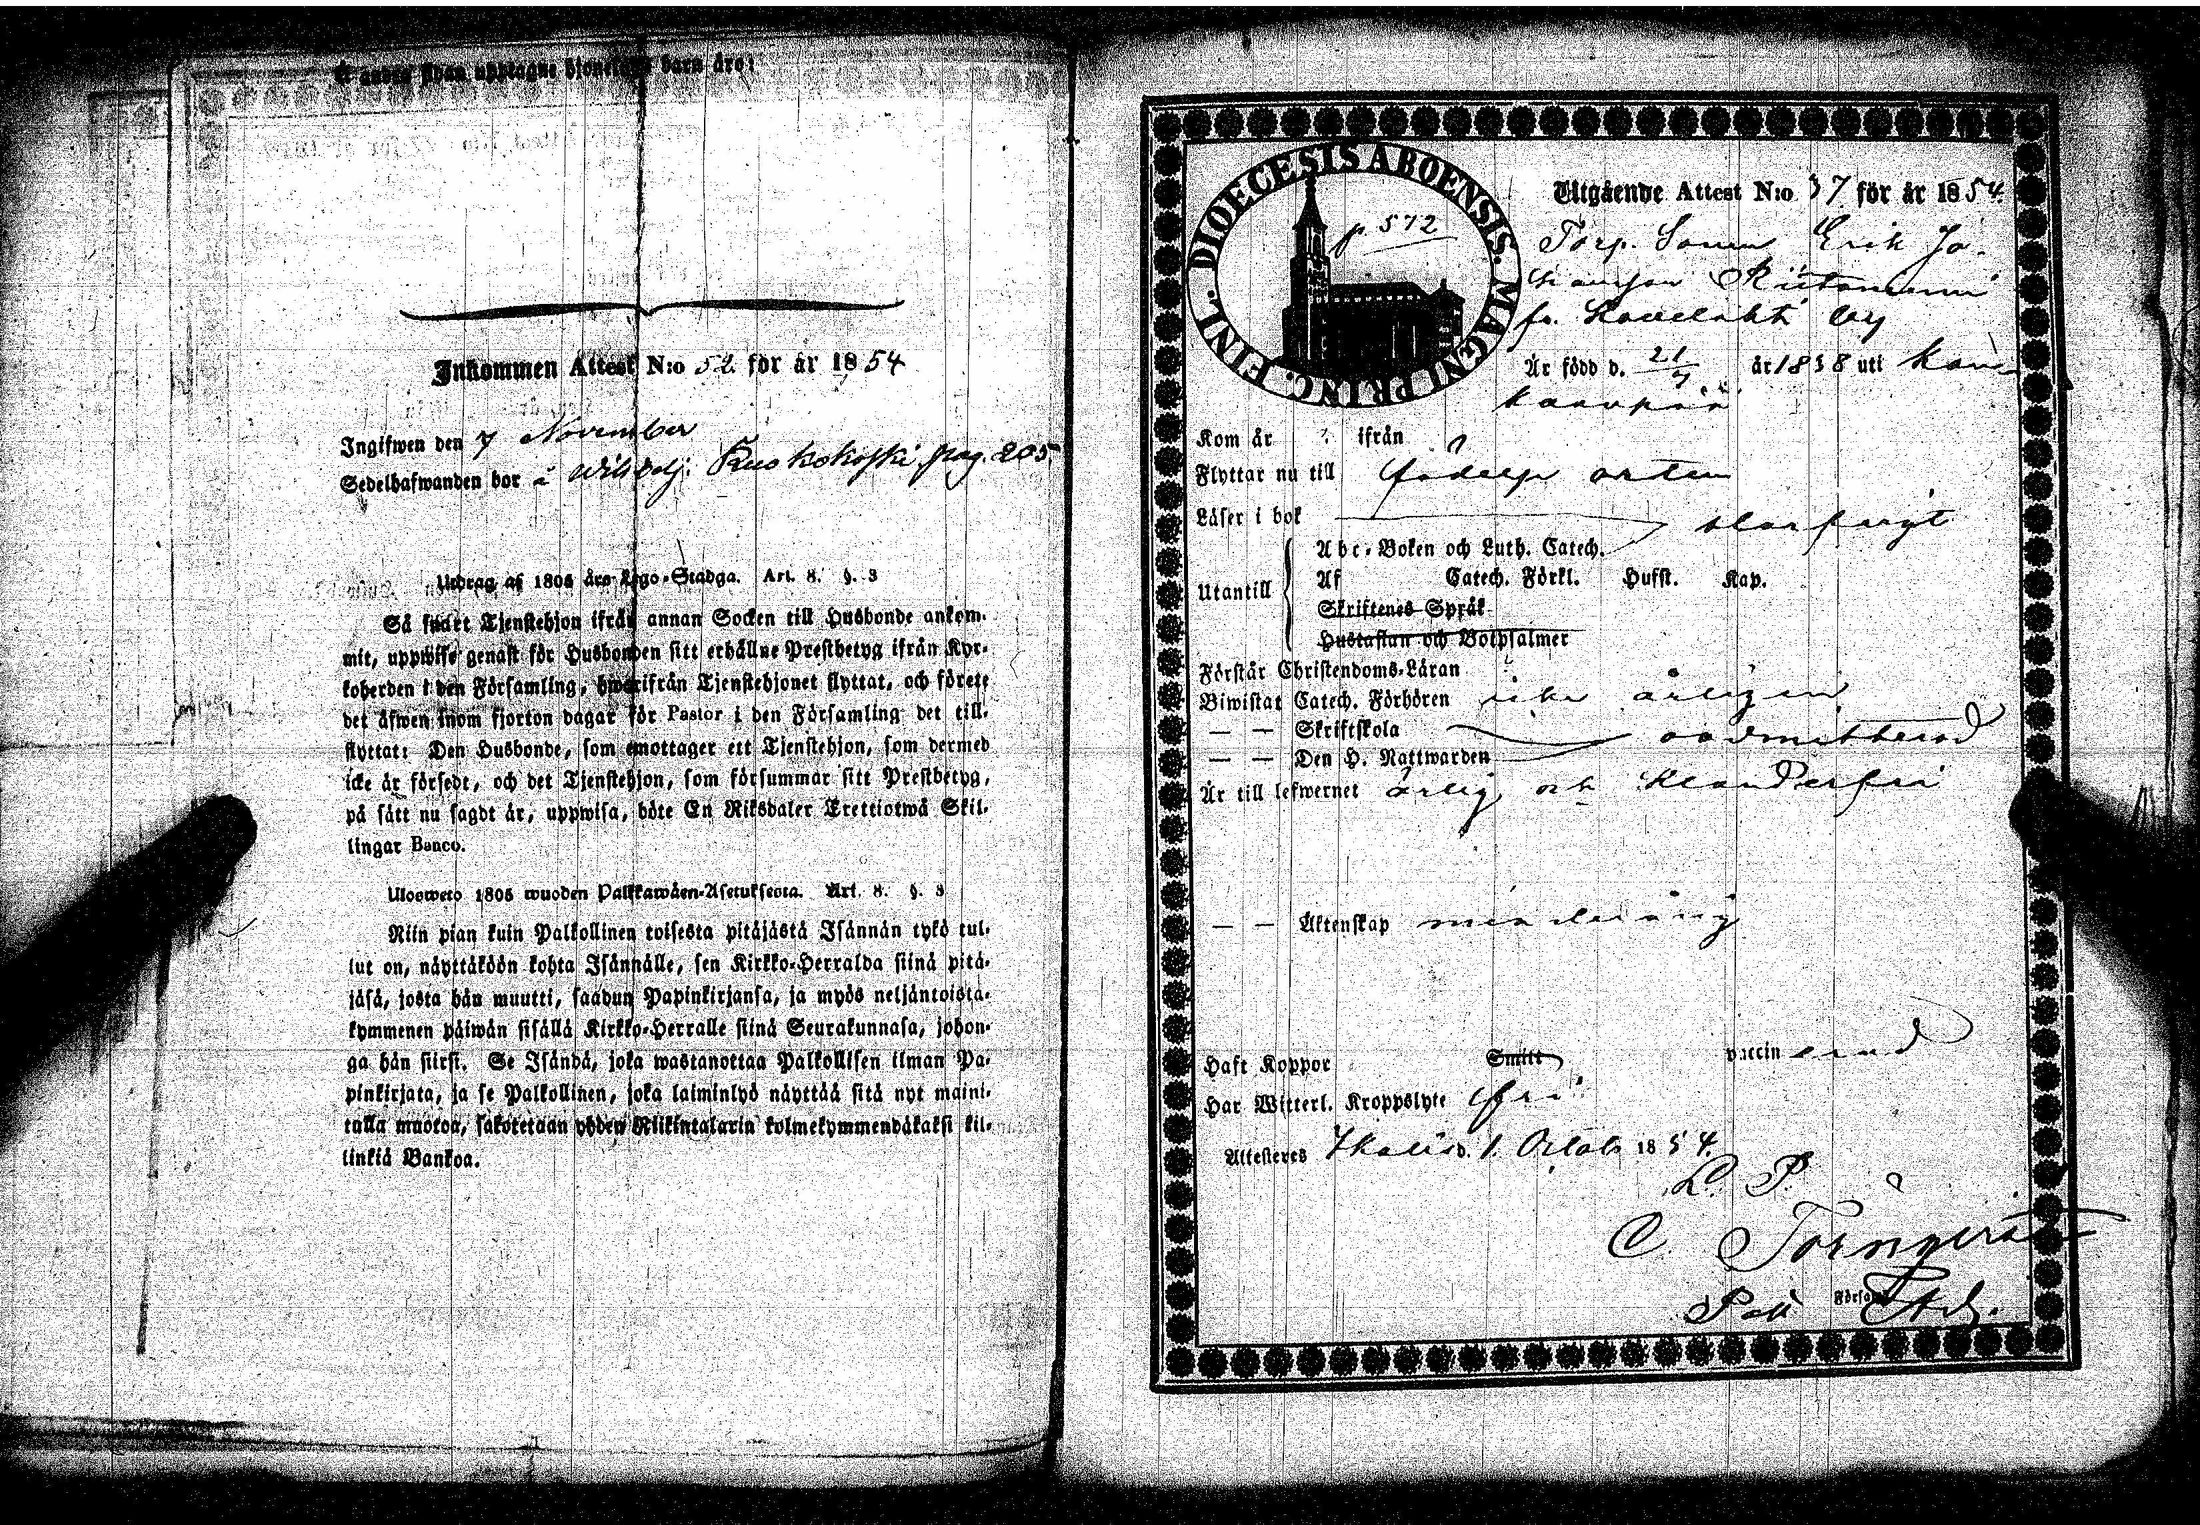 Å andra sidan upptagne hionelags barn äro:
Inkommen Attest N:o 52 för år 1854
Ingifwen den 7 November
Sedelhafwanden bor å Kuokokoski pag. 205
Utdrag af 1805 års Lego-Stadga. Art. 8. §. 3
Så snart Tjenstehjon ifrån annan Socken till Husbonde ankom-
mit, uppwise genast för Husbonden sitt erhållne Prestbetyg ifrån Kyr-
koherden i den Församling, hwarifrån Tjenstehjonet flyttat, och förete
det äfwen inom fjorton dagar för Pastor i den Församling det till-
flyttat: Den Husbonde, som emottager ett Tjenstehjon, som dermed
icke är försedt, och det Tjenstehjon, som försummar sitt Prestbetyg,
på sätt nu sagdt är, uppwisa, böte En Riksdaler Trettiotwå Skil-
lingar Banco.
Ulosweto 1805 wuoden Palkkawäen-Asetuksesta. Art. 8. §. 3
Niin pian kuin Palkollinen toisesta pitäjästä Isännän tykö tul-
lut on, näyttäköön kohta Isännälle, sen Kirkko-Herralda siinä pitä-
jäsä, josta hän muutti, saadun Papinkirjansa, ja myös neljäntoista-
kymmenen päiwän sisällä Kirkko-Herralle siinä Seurakunnasa, johon-
ga hän siirsi. Se Isändä, joka wastanottaa Palkollisen ilman Pa-
pinkirjata, ja se Palkollinen, joka laiminlyö näyttää sitä nyt maini-
tulla muotoa, sakotetaan yhden Riikintalarin kolmekymmendäkaksi kil-
linkiä Bankoa.
DIOECESIS ABOENSIS. MAGNI PRINC. FINL.
p 572
Utgående Attest N:o 37 för år 1854.
Torp. Sonen Erik Jo-
hansson
fr. by
Är född d. 21/7 år 1838 uti Kan-
kaanpää
Kom år ? ifrån ?
Flyttar nu till födelse orten
Läser i bok
Abc-Boken och Luth. Catech. swagt
Utantill
Af Catech. Förkl. Husst. Kap.
Skriftenes Språk
Hustaflan och Botpsalmer
Förstår Christendoms-Läran
Biwistat Catech. Förhören icke årligen
— — Skriftskola oadmitterad
— — Den H. Nattwarden
Är till lefwernet ärlig och klanderfri
— — Äktenskap minderårig
Haft Koppor Smitt vaccinerad
Har Witterl. Kroppslyte fri
Attesteras Ikalis d. 1 Octob 1854.
L. P.
C. Törnqvist
Församl.